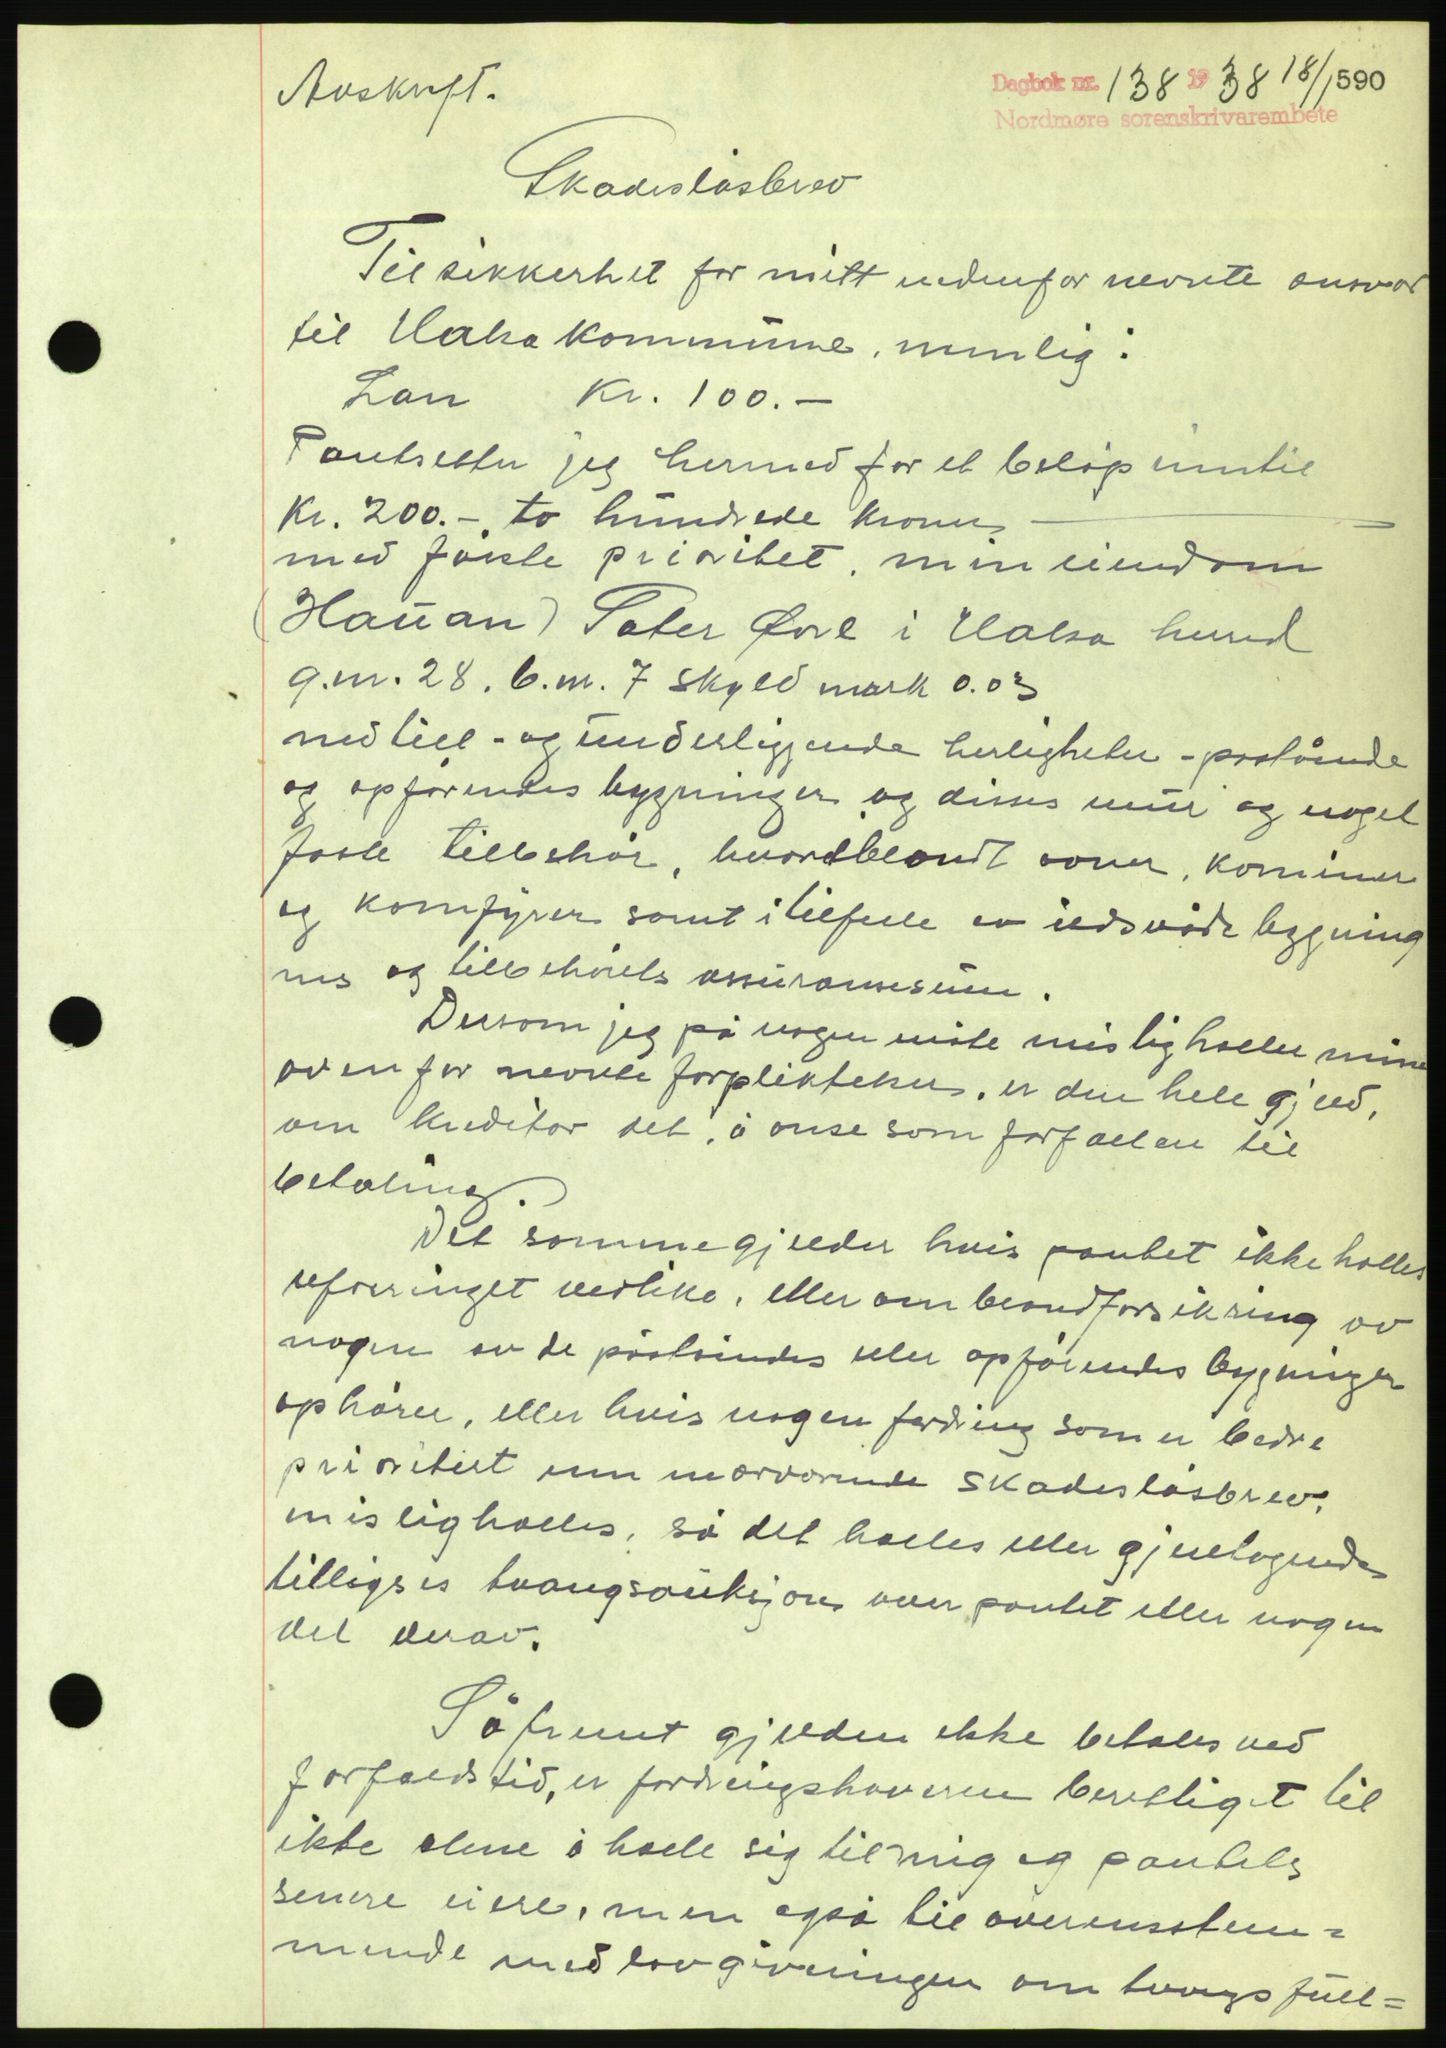 Avskrift.
Dagbok nr. 138 19 38 18/1 590
Nordmøre sorenskrivarembete
Skadesløsbrev
Til sikkerhet for mitt nedenfor nevnte ansvar
til Halsa kommune, nemlig:
Lån Kr. 100.-
Pantsetter jeg hermed for et beløp inntil
Kr. 200.- to hundrede kroner
med første prioritet, min eiendom
(Hauan) Sæter i Halsa herred
g.nr. 28. b.nr. 7 skyld mark 0.03
med till- og underliggende herligheter - påstående
og opførendes bygninger og disses mur og nagel
faste tilbehør, hvoriblandt ovner, kominer
og komfyrer samt i tilfelle av ildsvåde bygning
nes og tilbehørets assuransesum.
Dersom jeg på nogen måte misligholder mine
ovenfor nevnte forpliktelser, er den hele gjeld,
om kreditor vel, å anse som forfallen til
betaling.
Det samme gjelder hvis pantet ikke holdes
uforringet vedlike, eller om brandforsikring av
nogen av de påståendes eller opførendes bygninger
ophører, eller hvis nogen fordring som er bedre
prioritert enn nærværende skadesløsbrev,
misligholdes, så det holdes eller gjentagendes
tillyses tvangsauksjon over pantet eller nogen
del derav.
Såfremt gjelden ikke betales ved
forfaldstid, er fordringshaveren berettiget til
ikke alene å holde sig til mig og pantets
senere eiere, men også til overensstem=
mende med lovgivningen om tvangsfull=